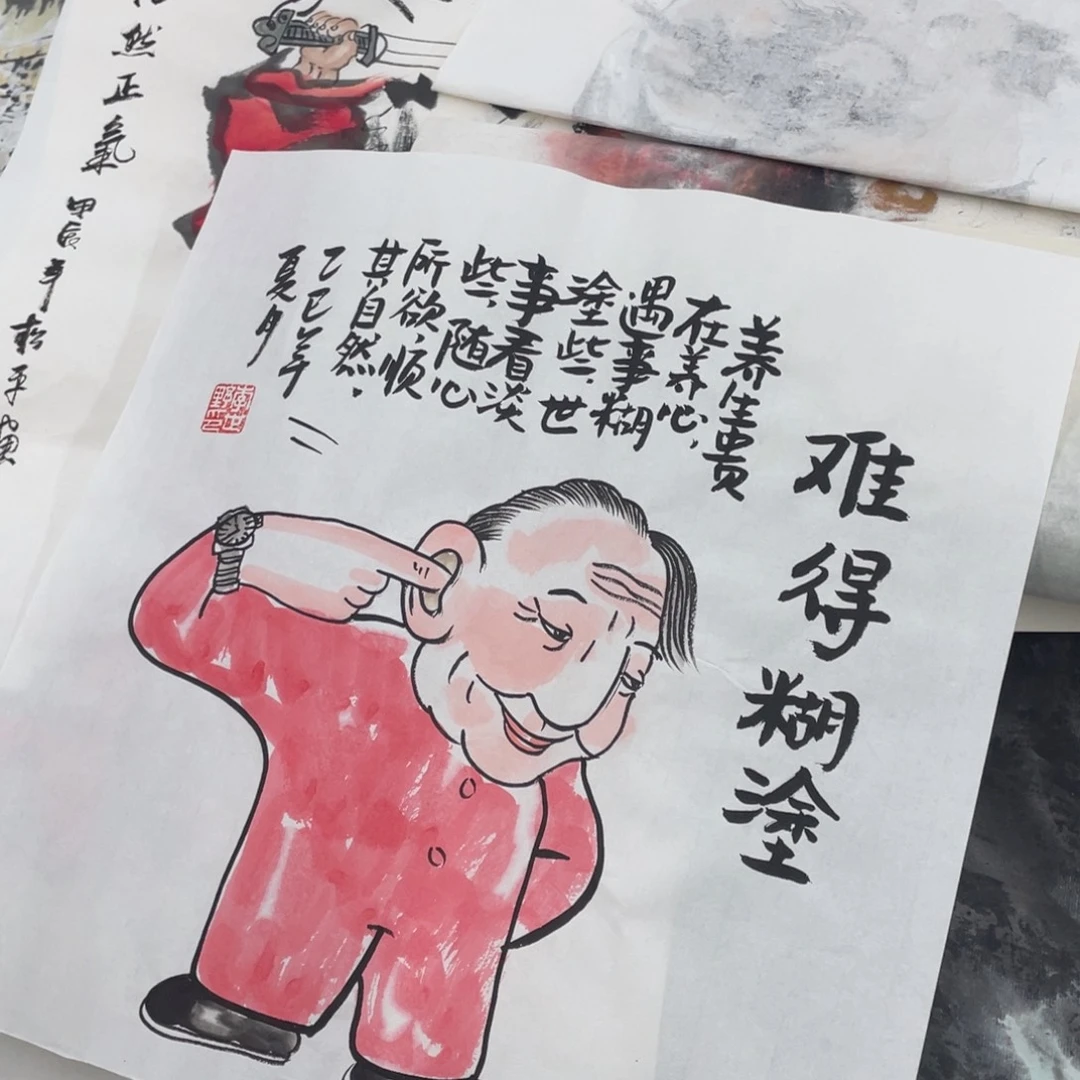 难得糊塗
养生贵
在养心，
遇事糊
塗些，世
事看淡
些，随心
所欲，顺
其自然。
乙巳年
夏月
然正氣
甲辰年松平